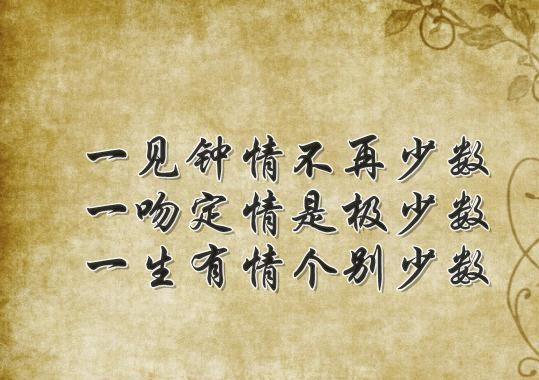 一见钟情不再少数
一吻定情是极少数
一生有情个别少数